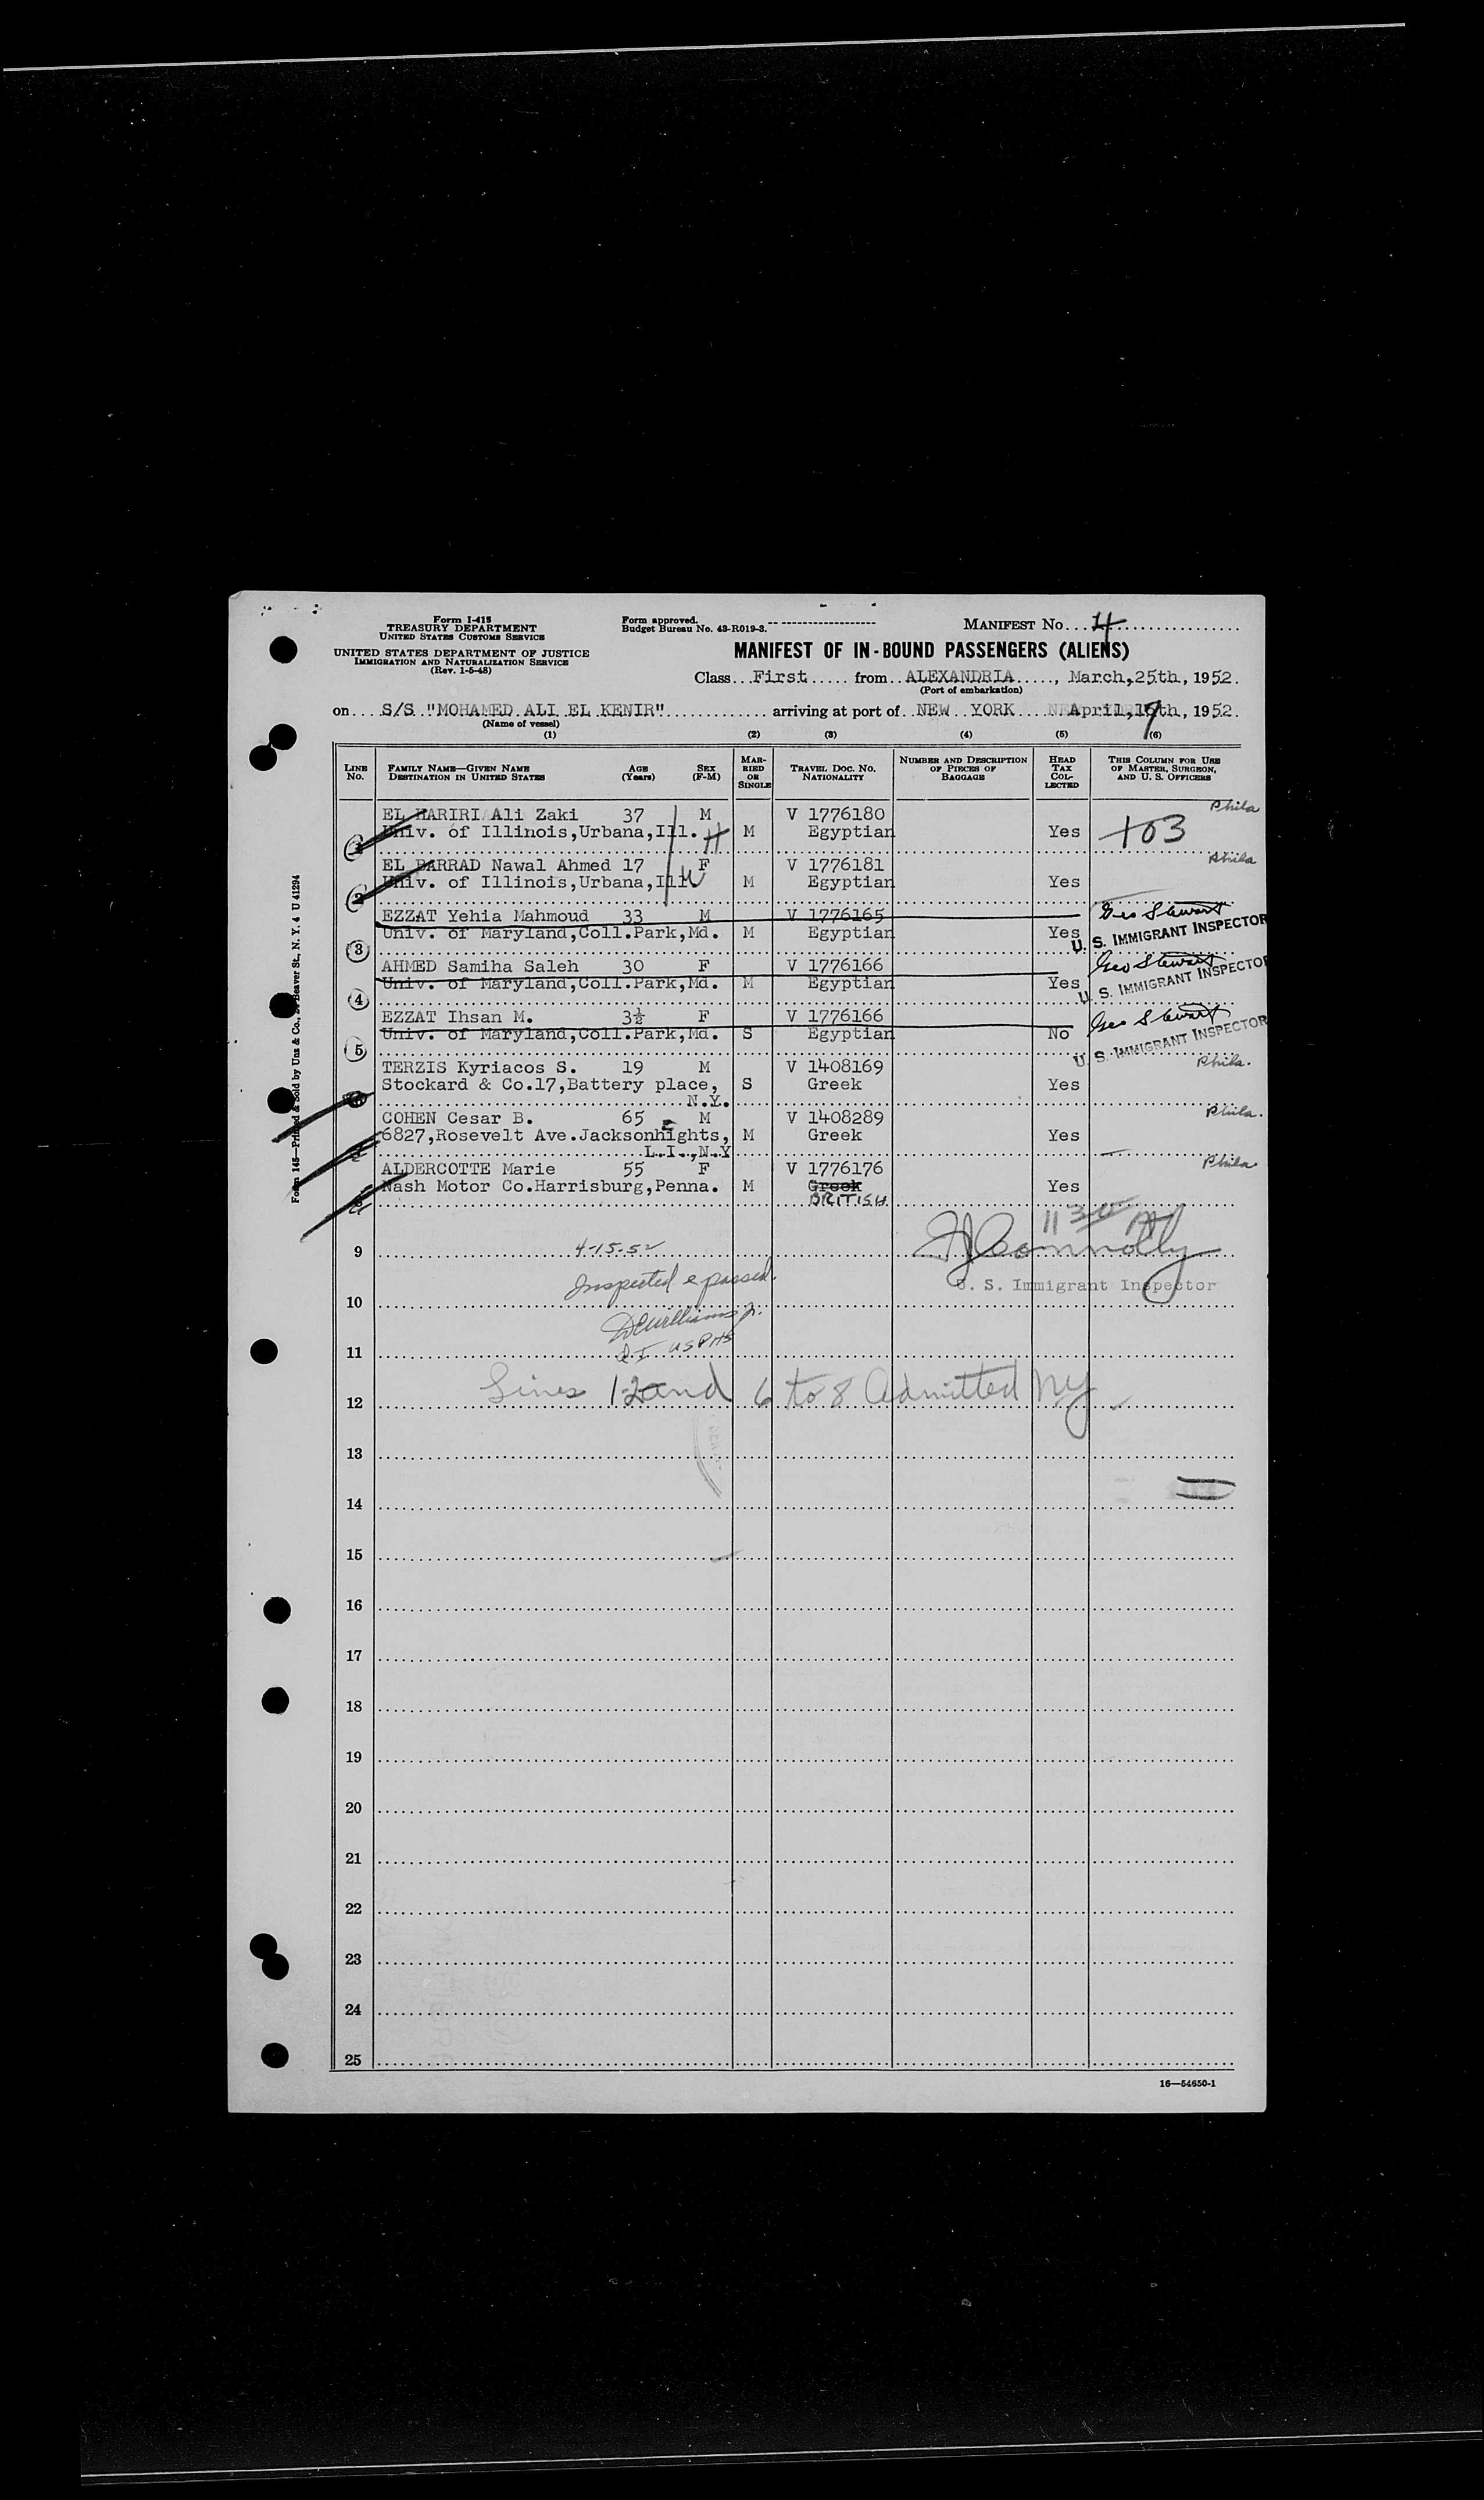 Form I-415
TREASURY DEPARTMENT
UNITED STATES CUSTOMS SERVICE
UNITED STATES DEPARTMENT OF JUSTICE
IMMIGRATION AND NATURALIZATION SERVICE
(Rev. 1-5-48)
Form approved.
Budget Bureau No. 43-R019-3.
MANIFEST No. 4
MANIFEST OF IN-BOUND PASSENGERS (ALIENS)
Class First from ALEXANDRIA, March, 25th, 1952.
(Port of embarkation)
on S/S "MOHAMED ALI EL KENIR" arriving at port of NEW YORK April, 19th, 1952.
(Name of vessel)
(1) (2) (3) (4) (5) (6)
LINE No. FAMILY NAME—GIVEN NAME DESTINATION IN UNITED STATES AGE (Years) SEX (F-M) MARRIED OR SINGLE TRAVEL DOC. NO. NATIONALITY NUMBER AND DESCRIPTION OF PIECES OF BAGGAGE HEAD TAX COLLECTED THIS COLUMN FOR USE OF MASTER, SURGEON, AND U. S. OFFICERS
EL HARIRI Ali Zaki 37 M V 1776180 Phila
1 Univ. of Illinois,Urbana,Ill. H M Egyptian Yes 103
EL BARRAD Nawal Ahmed 17 F V 1776181 Phila
2 Univ. of Illinois,Urbana,Ill W M Egyptian Yes
EZZAT Yehia Mahmoud 33 M V 1776165 Geo Stewart
3 Univ. of Maryland,Coll.Park,Md. M Egyptian Yes U. S. IMMIGRANT INSPECTOR
AHMED Samiha Saleh 30 F V 1776166 Geo Stewart
4 Univ. of Maryland,Coll.Park,Md. M Egyptian Yes U. S. IMMIGRANT INSPECTOR
EZZAT Ihsan M. 3½ F V 1776166 Geo Stewart
5 Univ. of Maryland,Coll.Park,Md. S Egyptian No U. S. IMMIGRANT INSPECTOR
TERZIS Kyriacos S. 19 M V 1408169 Phila.
Stockard & Co.17,Battery place, S Greek Yes
N.Y.
COHEN Cesar B. 65 M V 1408289 Phila.
6827,Rosevelt Ave.Jacksonhights, M Greek Yes
L.I.,N.Y
ALDERCOTTE Marie 55 F V 1776176 Phila
Nash Motor Co.Harrisburg,Penna. M Greek Yes
BRITISH
9 4-15-52 Connolly
Inspected & passed.
U. S. Immigrant Inspector
10
DEWilliams Jr.
11 USPHS
12 Lines 1-2 and 6 to 8 Admitted NY
13
14
15
16
17
18
19
20
21
22
23
24
25
16—54650-1